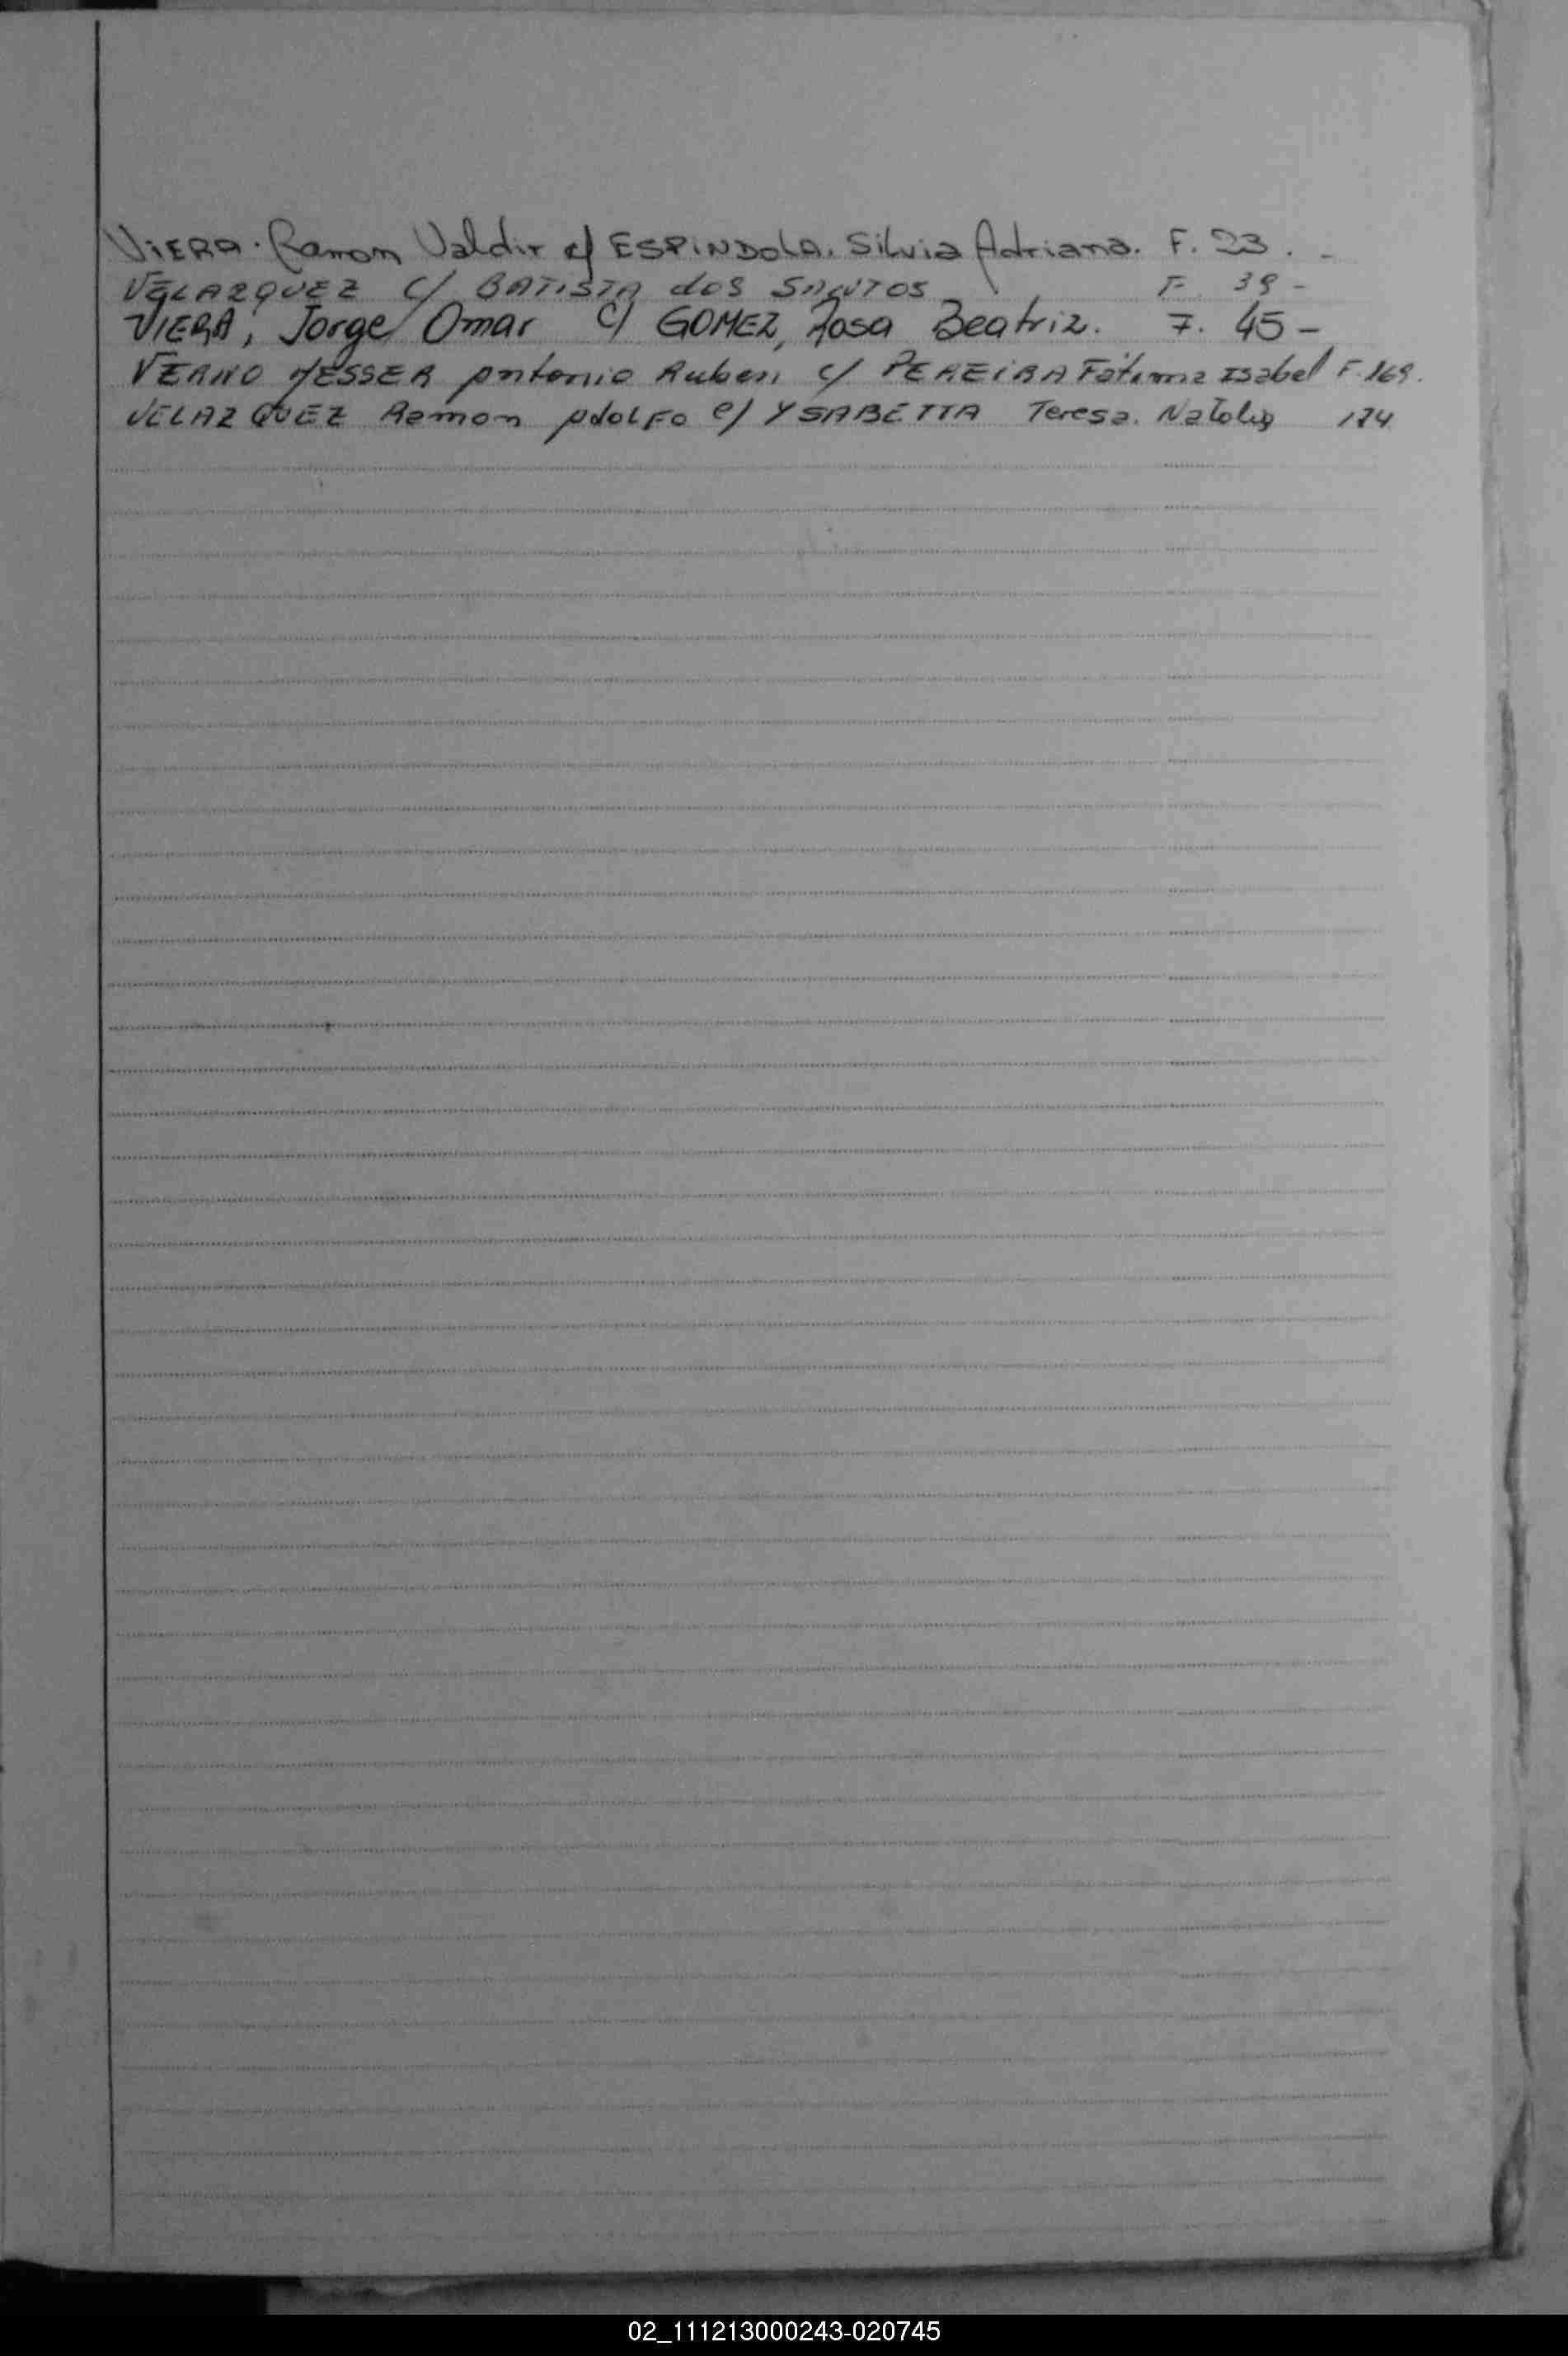 VIERA. Ramon Valdir c/ ESPINDOLA. Silvia Adriana. F. 23. -
VELAZQUEZ c/ BATISTA dos SANTOS F. 39 -
VIERA, Jorge Omar c/ GOMEZ, Rosa Beatriz. F. 45 -
Antonio Ruben c/ PEREIRA Fátima Isabel F. 169.
VELAZQUEZ Ramon Adolfo c/ YSABETTA Teresa. 174
02_111213000243-020745